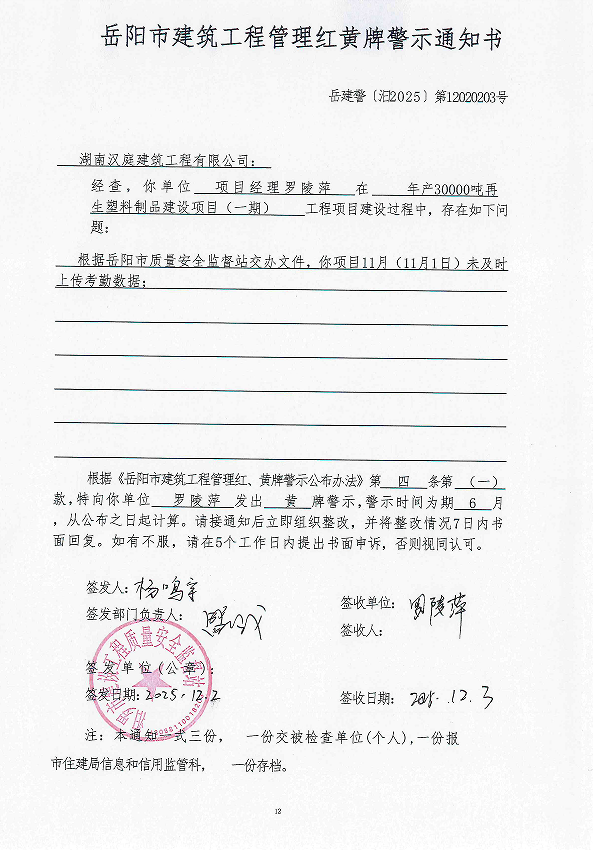 岳阳市建筑工程管理红黄牌警示通知书
岳建警〔汨2025〕第12020203号
湖南汉庭建筑工程有限公司：
经查，你单位 项目经理罗陵萍 在 年产30000吨再
生塑料制品建设项目（一期） 工程项目建设过程中，存在如下问
题：
根据岳阳市质量安全监督站交办文件，你项目11月（11月1日）未及时
上传考勤数据；
根据《岳阳市建筑工程管理红、黄牌警示公布办法》第 四 条第 （一）
款，特向你单位 罗陵萍 发出 黄 牌警示，警示时间为期 6 月
，从公布之日起计算。请接通知后立即组织整改，并将整改情况7日内书
面回复。如有不服，请在5个工作日内提出书面申诉，否则视同认可。
签发人：杨鸣宇
签发部门负责人：
签收单位：罗陵萍
签收人：
签发单位(公章)：
签发日期：2025.12.2
签收日期：2025.12.3
注：本通知一式三份， 一份交被检查单位(个人)，一份报
市住建局信息和信用监管科， 一份存档。
12